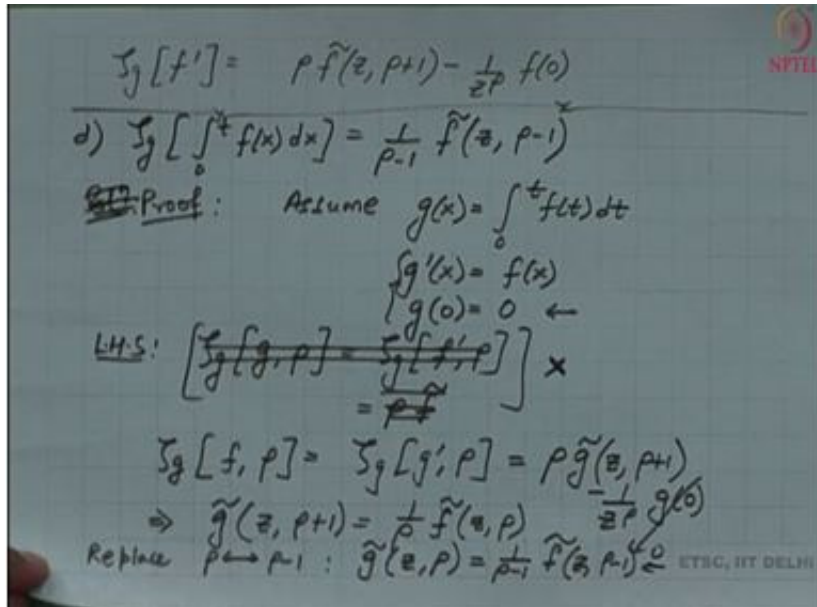 ζg[f'] = ρ f̃(z, ρ+1) - 1/z^ρ f(0)
NPTEL
d) ζg[∫₀ᵗ f(x) dx] = 1/(ρ-1) f̃(z, ρ-1)
Proof: Assume g(x) = ∫₀ᵗ f(t) dt
{g'(x) = f(x)
{g(0) = 0 ←
L.H.S: [ζg[g, ρ] = ζg[f', ρ]] ×
= ρ f̃
ζg[f, ρ] = ζg[g', ρ] = ρ g̃(z, ρ+1)
- 1/z^ρ g(0)
⇒ g̃(z, ρ+1) = 1/ρ f̃(z, ρ)
0
Replace ρ ↔ ρ-1 : g̃(z, ρ) = 1/(ρ-1) f̃(z, ρ-1) ←
ETSC, IIT DELHI